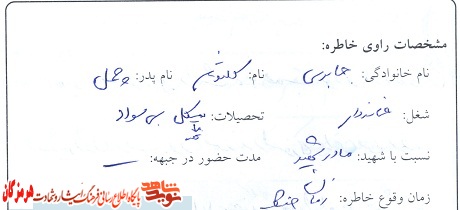 مشخصات راوی خاطره:
نام خانوادگی: جابری نام: کلثوم نام پدر:
شغل: خانه‌دار تحصیلات: بی سواد
نسبت با شهید: مادر شهید مدت حضور در جبهه: —
زمان وقوع خاطره: زمان جنگ
نوید شاهد پایگاه اطلاع رسانی فرهنگ ایثار و شهادت هرمزگان